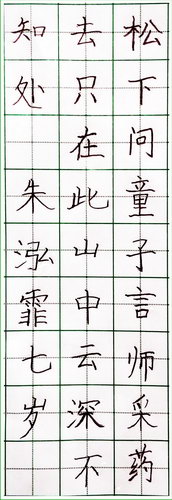 松下问童子言师采药
去只在此山中云深不
知处 朱泓霏七岁